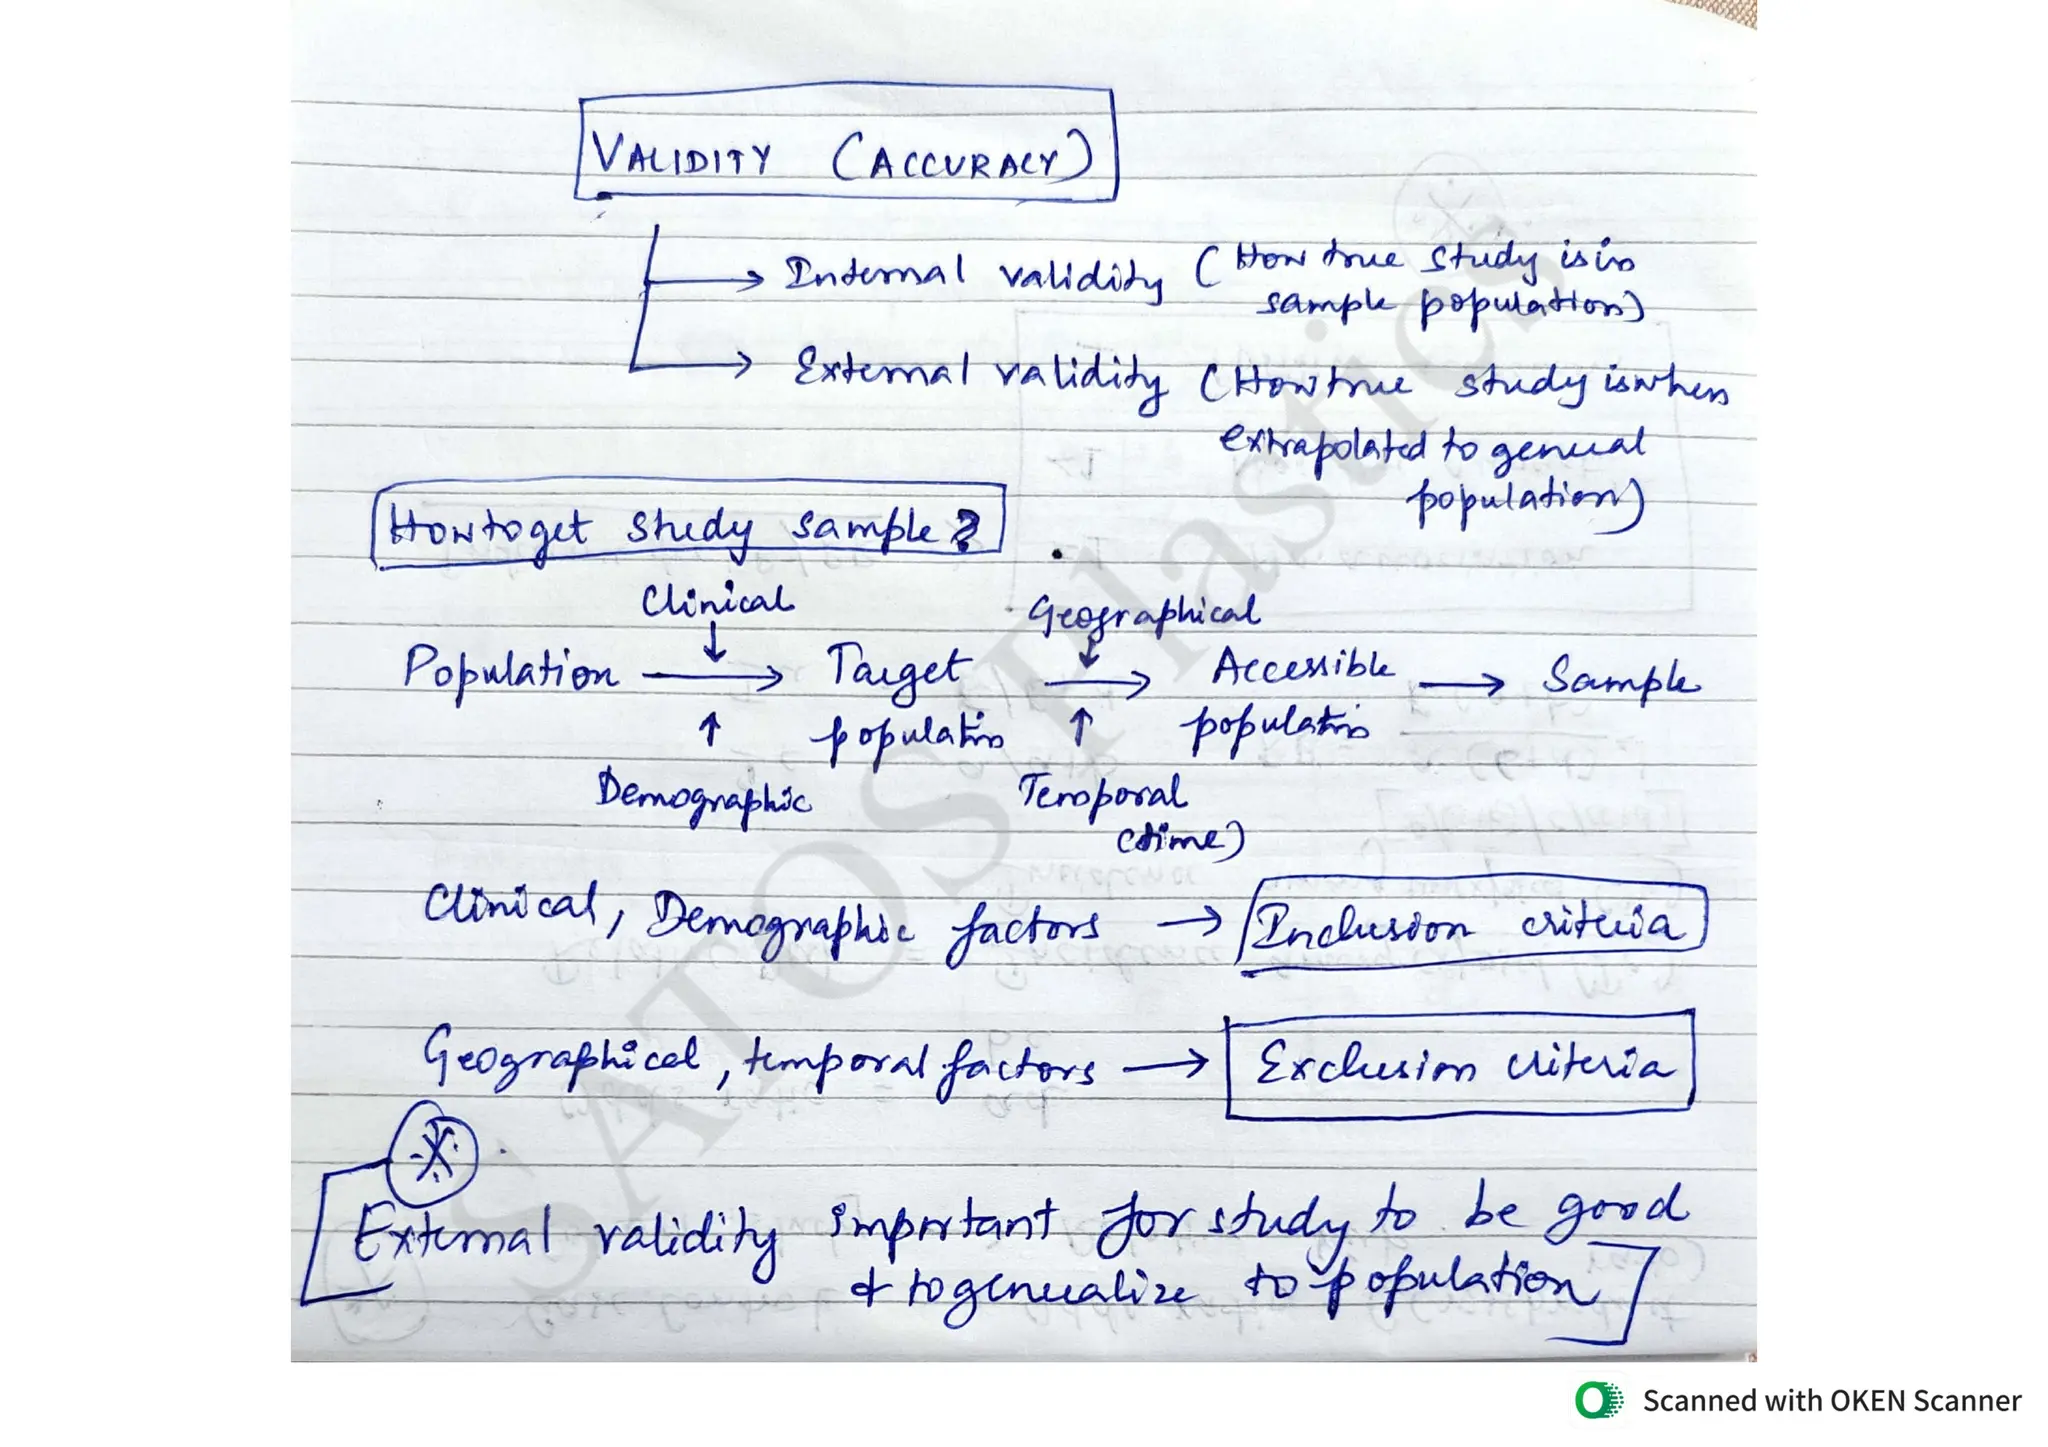 VALIDITY (ACCURACY)
→ Internal validity (How true study is in
sample population)
→ External validity (How true study is when
extrapolated to general
population)
How to get study sample?
Clinical Geographical
↓ ↓
Population → Target → Accessible → Sample
↑ population ↑ population
Demographic Temporal
(time)
Clinical, Demographic factors → Inclusion criteria
Geographical, temporal factors → Exclusion criteria
External validity important for study to be good
& to generalize to population
SATOSPlastics
Scanned with OKEN Scanner